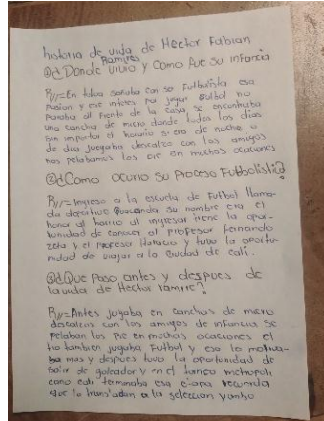 historia de vida de Hector Fabian
Ramires
①¿Donde vivio y Como fue su infancia
R//= En tulua soñaba con ser Futbolista esa
pasion y ese interes por jugar futbol no
paraba al frente de la casa se encontraba
una cancha de micro donde todos los dias
sin importa el horario si era de noche o
de dia juegaba descalzo con los amigos
nos pelabamos los pie en muchas ocaciones
②¿Como ocurio su Proceso Futbolistico?
R//= Ingreso a la escuela de Futbol llama-
da deportivo su nombre era el
honor al barrio al ingresar tiene la opor-
tunidad de conocer al profesor fernando
zota y el profesor Horacio y tuvo la oportu-
nidad de viajar a la ciudad de cali.
③¿Que Paso antes y despues de
la vida de Hector ramire?
R//= Antes jugaba en canchas de micro
descalzos con los amigos de infancia se
pelaban los Pie en muchas ocaciones el
tio tambien jugaba Futbol y eso lo motiva-
ba mas y despues tuvo la oportunidad de
salir de goleador y en el torneo metropoli
cano cali terminaba esa etapa recuerda
que lo transladan a la seleccion yumbo